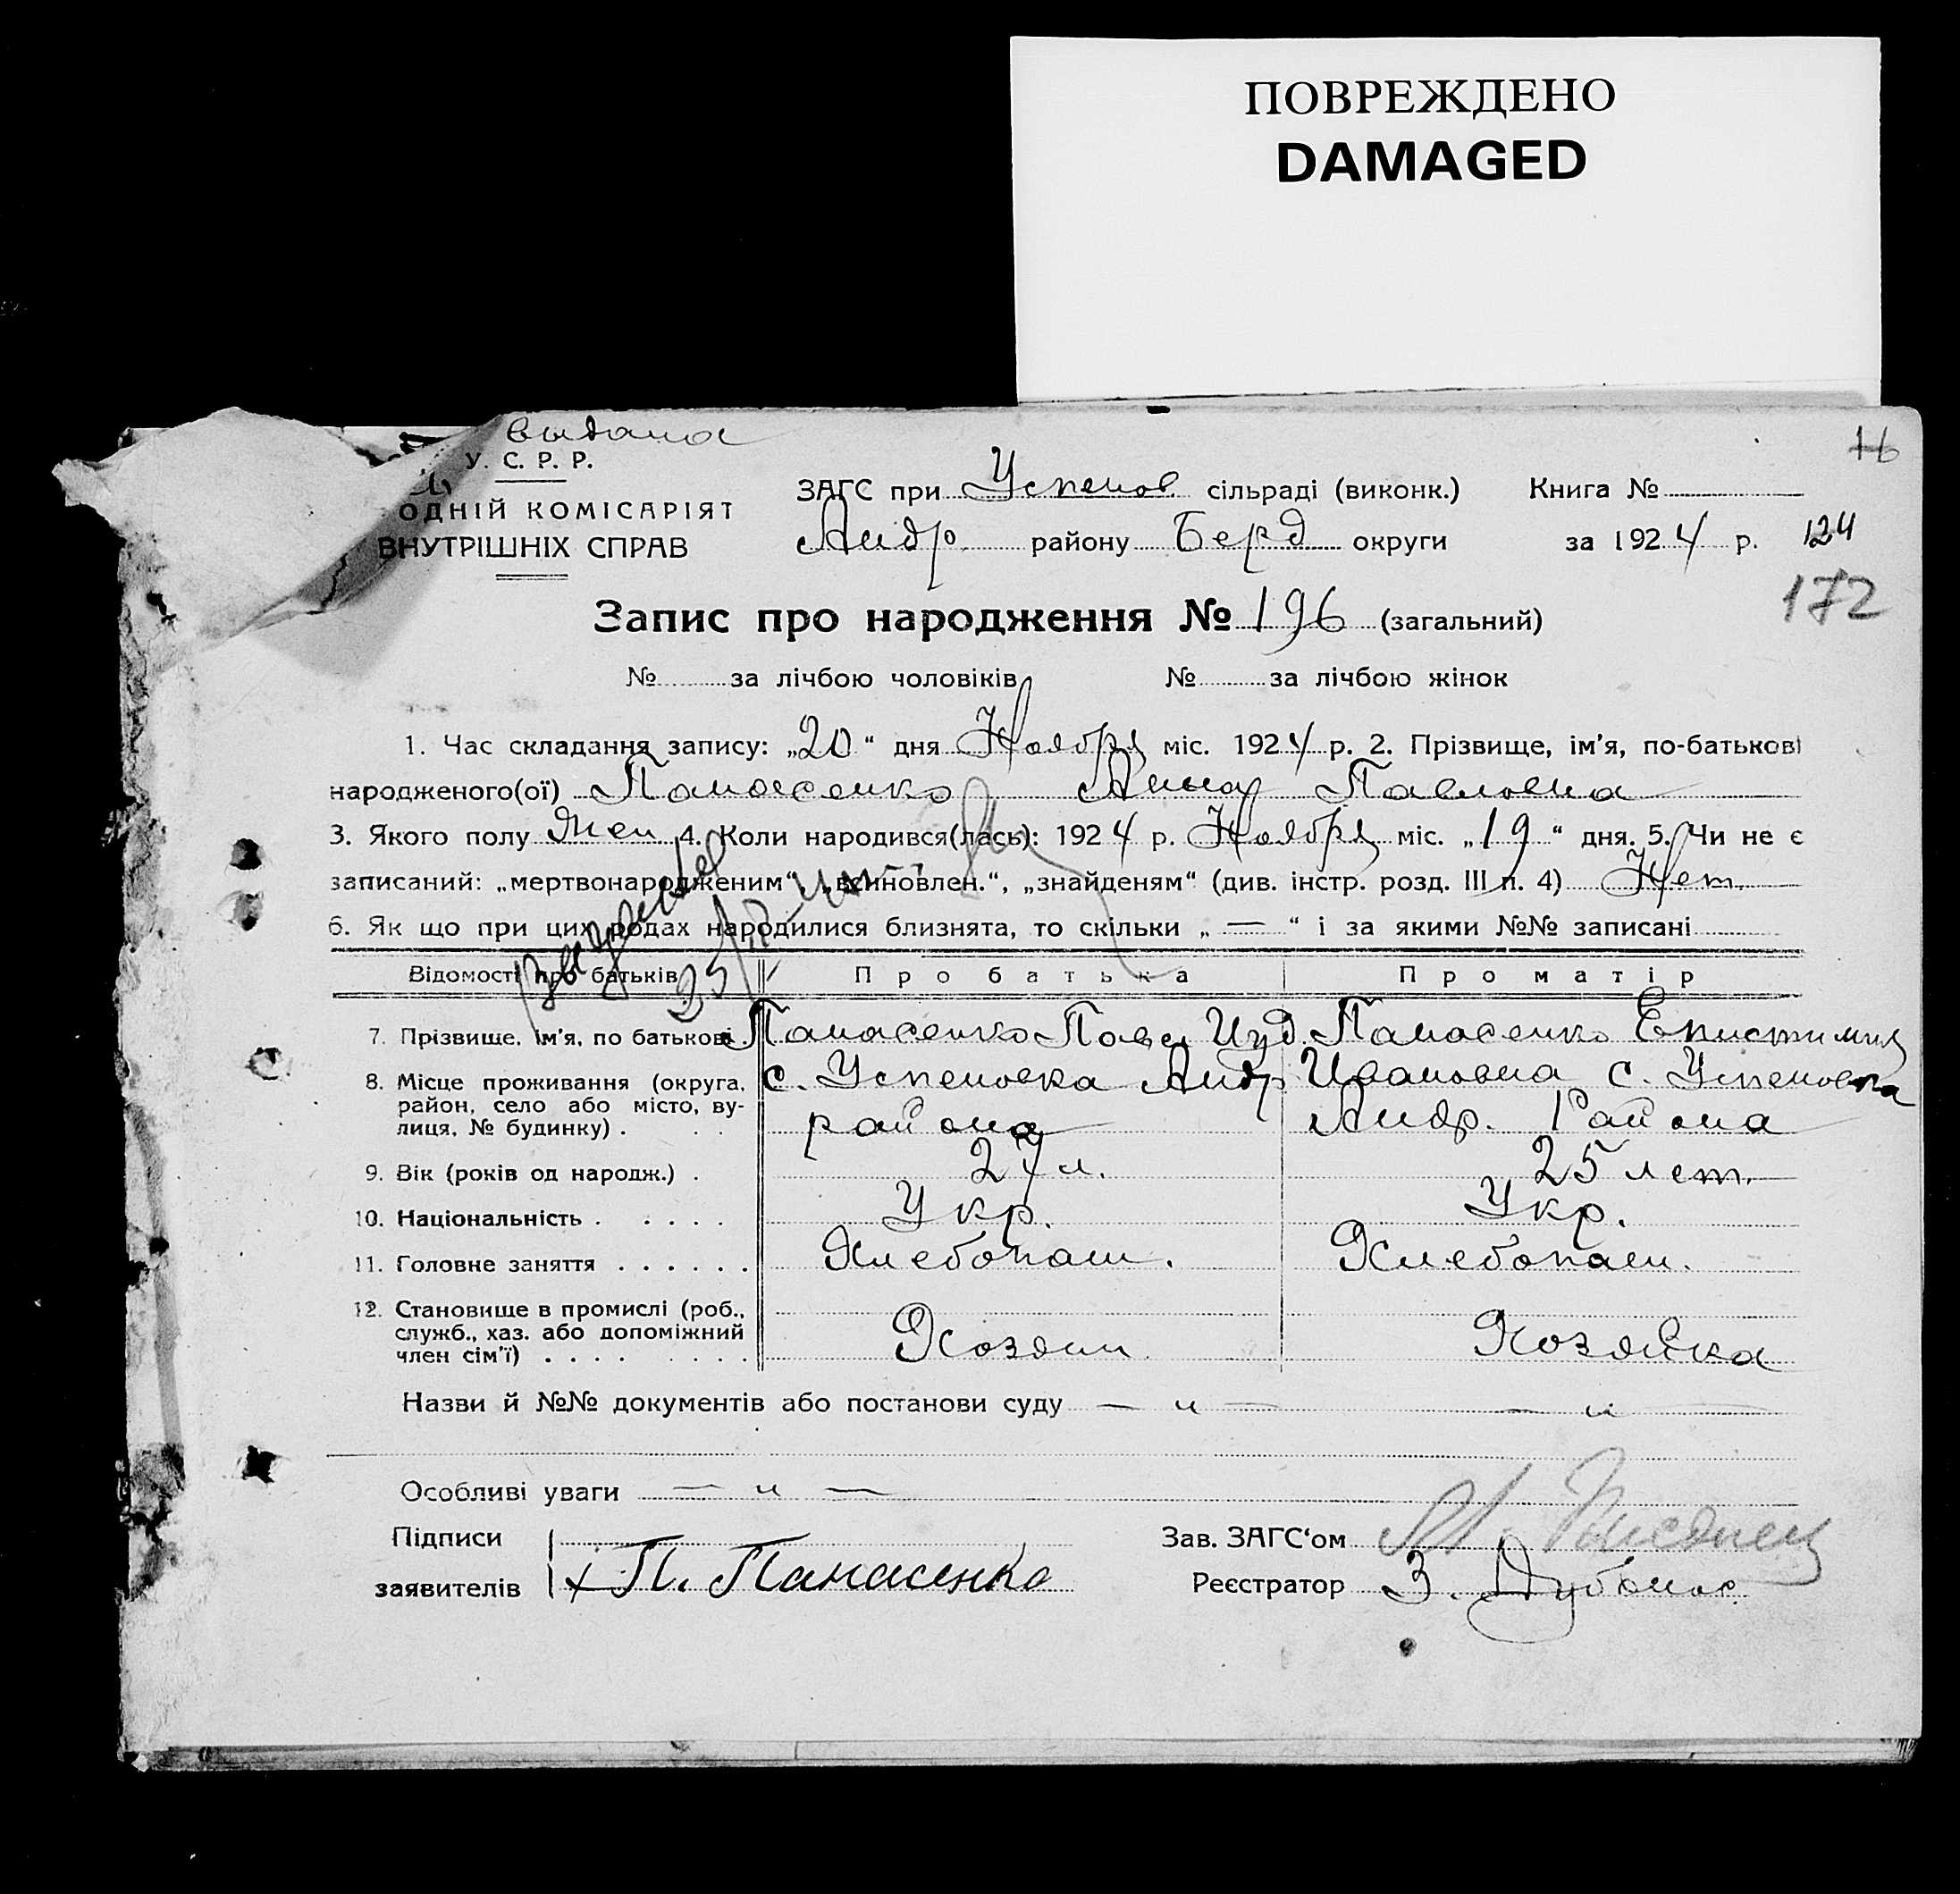 ПОВРЕЖДЕНО
DAMAGED
выдана
16
У. С. Р. Р.
ОДНІЙ КОМІСАРІЯТ
ВНУТРІШНІХ СПРАВ
ЗАГС при Успенов. сільраді (виконк.) Книга №
Андр. району Берд округи за 1924 р. 124
172
Запис про народження № 196 (загальний)
№ за лічбою чоловіків № за лічбою жінок
1. Час складання запису: „20“ дня Ноября міс. 1924 р. 2. Прізвище, ім'я, по-батькові
народженого(ої) Панасенко Анна Павловна
3. Якого полу Жен 4. Коли народився(лась): 1924 р. Ноября міс. „19“ дня. 5. Чи не є
записаний: „мертвонародженим“, „всиновлен.“, „знайденям“ (див. інстр. розд. III п. 4) Нет.
6. Як що при цих родах народилися близнята, то скільки „—“ і за якими №№ записані
Відомості про батьків Про батька Про матір
7. Прізвище, ім'я, по батькові Панасенко Павел Панасенко Епистимия
8. Місце проживання (округа, с. Успеновка Андр Ивановна с. Успеновка
район, село або місто, ву- района Андр. Района
лиця, № будинку) .
9. Вік (років од народж.) . 27 л. 25 лет.
10. Національність . . . . . Укр. Укр.
11. Головне заняття . . . . . . Хлебопаш. Хлебопаш.
12. Становище в промислі (роб.,
служб., хаз. або допоміжний Хозяин Хозяйка
член сім'ї) . . . . . . . .
Назви й №№ документів або постанови суду — „ — — „ —
Особливі уваги — „ —
Підписи Зав. ЗАГС'ом
заявителів + П. Панасенко Реєстратор З.